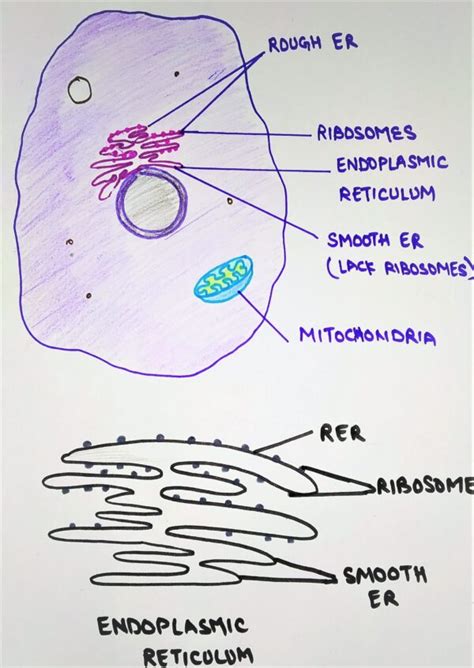 ROUGH ER
RIBOSOMES
ENDOPLASMIC
RETICULUM
SMOOTH ER
(LACK RIBOSOMES)
MITOCHONDRIA
RER
RIBOSOME
SMOOTH
ER
ENDOPLASMIC
RETICULUM